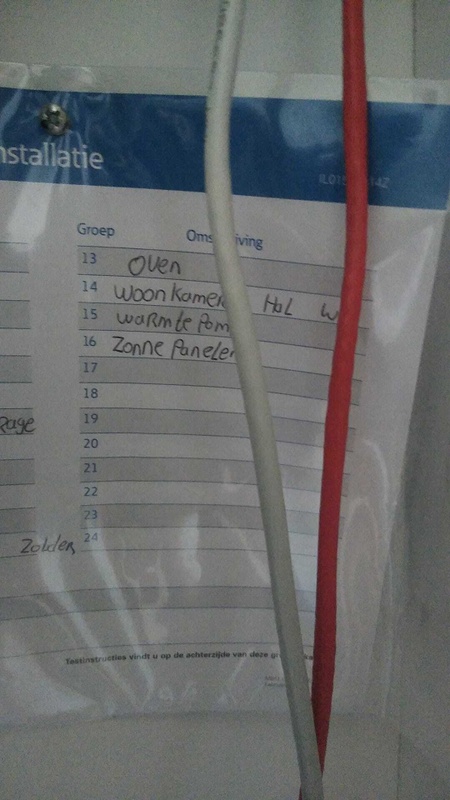 nstallatie
Groep
13 Oven
14 woonkamer Hal W
15 warmte Pom
16 Zonne Panelen
17
18
19
20
21
22
23
24
Rage
Zolder
Testinstructies vindt u op de achterzijde van deze